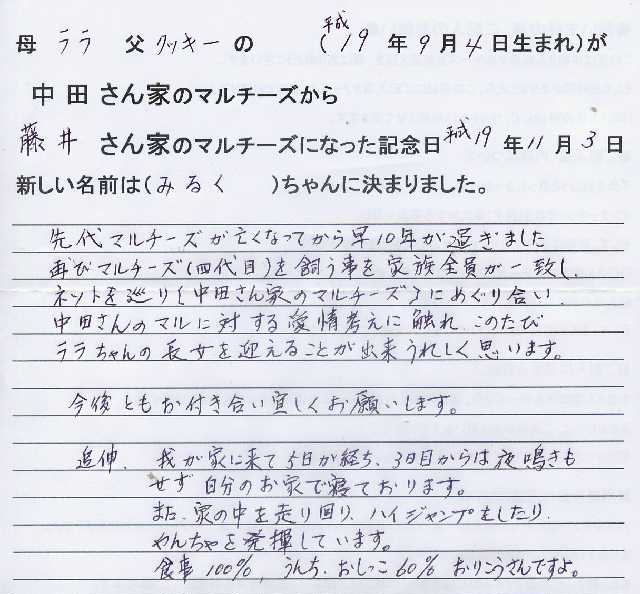 母 ララ 父 クッキー の (平成19年9月4日生まれ)が
中田さん家のマルチーズから
藤井 さん家のマルチーズになった記念日 平成19年11月3日
新しい名前は(みるく )ちゃんに決まりました。
先代マルチーズが亡くなってから早10年が過ぎました
再びマルチーズ(四代目)を飼う事を家族全員が一致し、
ネットを巡り{中田さん家のマルチーズ}にめぐり合い、
中田さんのマルに対する愛情考えに触れ、このたび
ララちゃんの長女を迎えることが出来うれしく思います。
今後ともお付き合い宜しくお願いします。
追伸、我が家に来て5日が経ち、3日目からは夜鳴きも
せず自分のお家で寝ております。
また、家の中を走り回り、ハイジャンプをしたり、
やんちゃを発揮しています。
食事100%、うんち、おしっこ60% おりこうさんですよ。